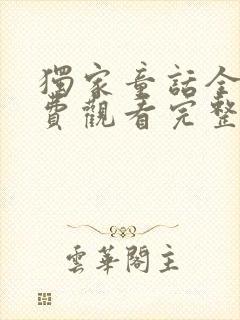 獨家童話全
費觀看完整
雲華閣主